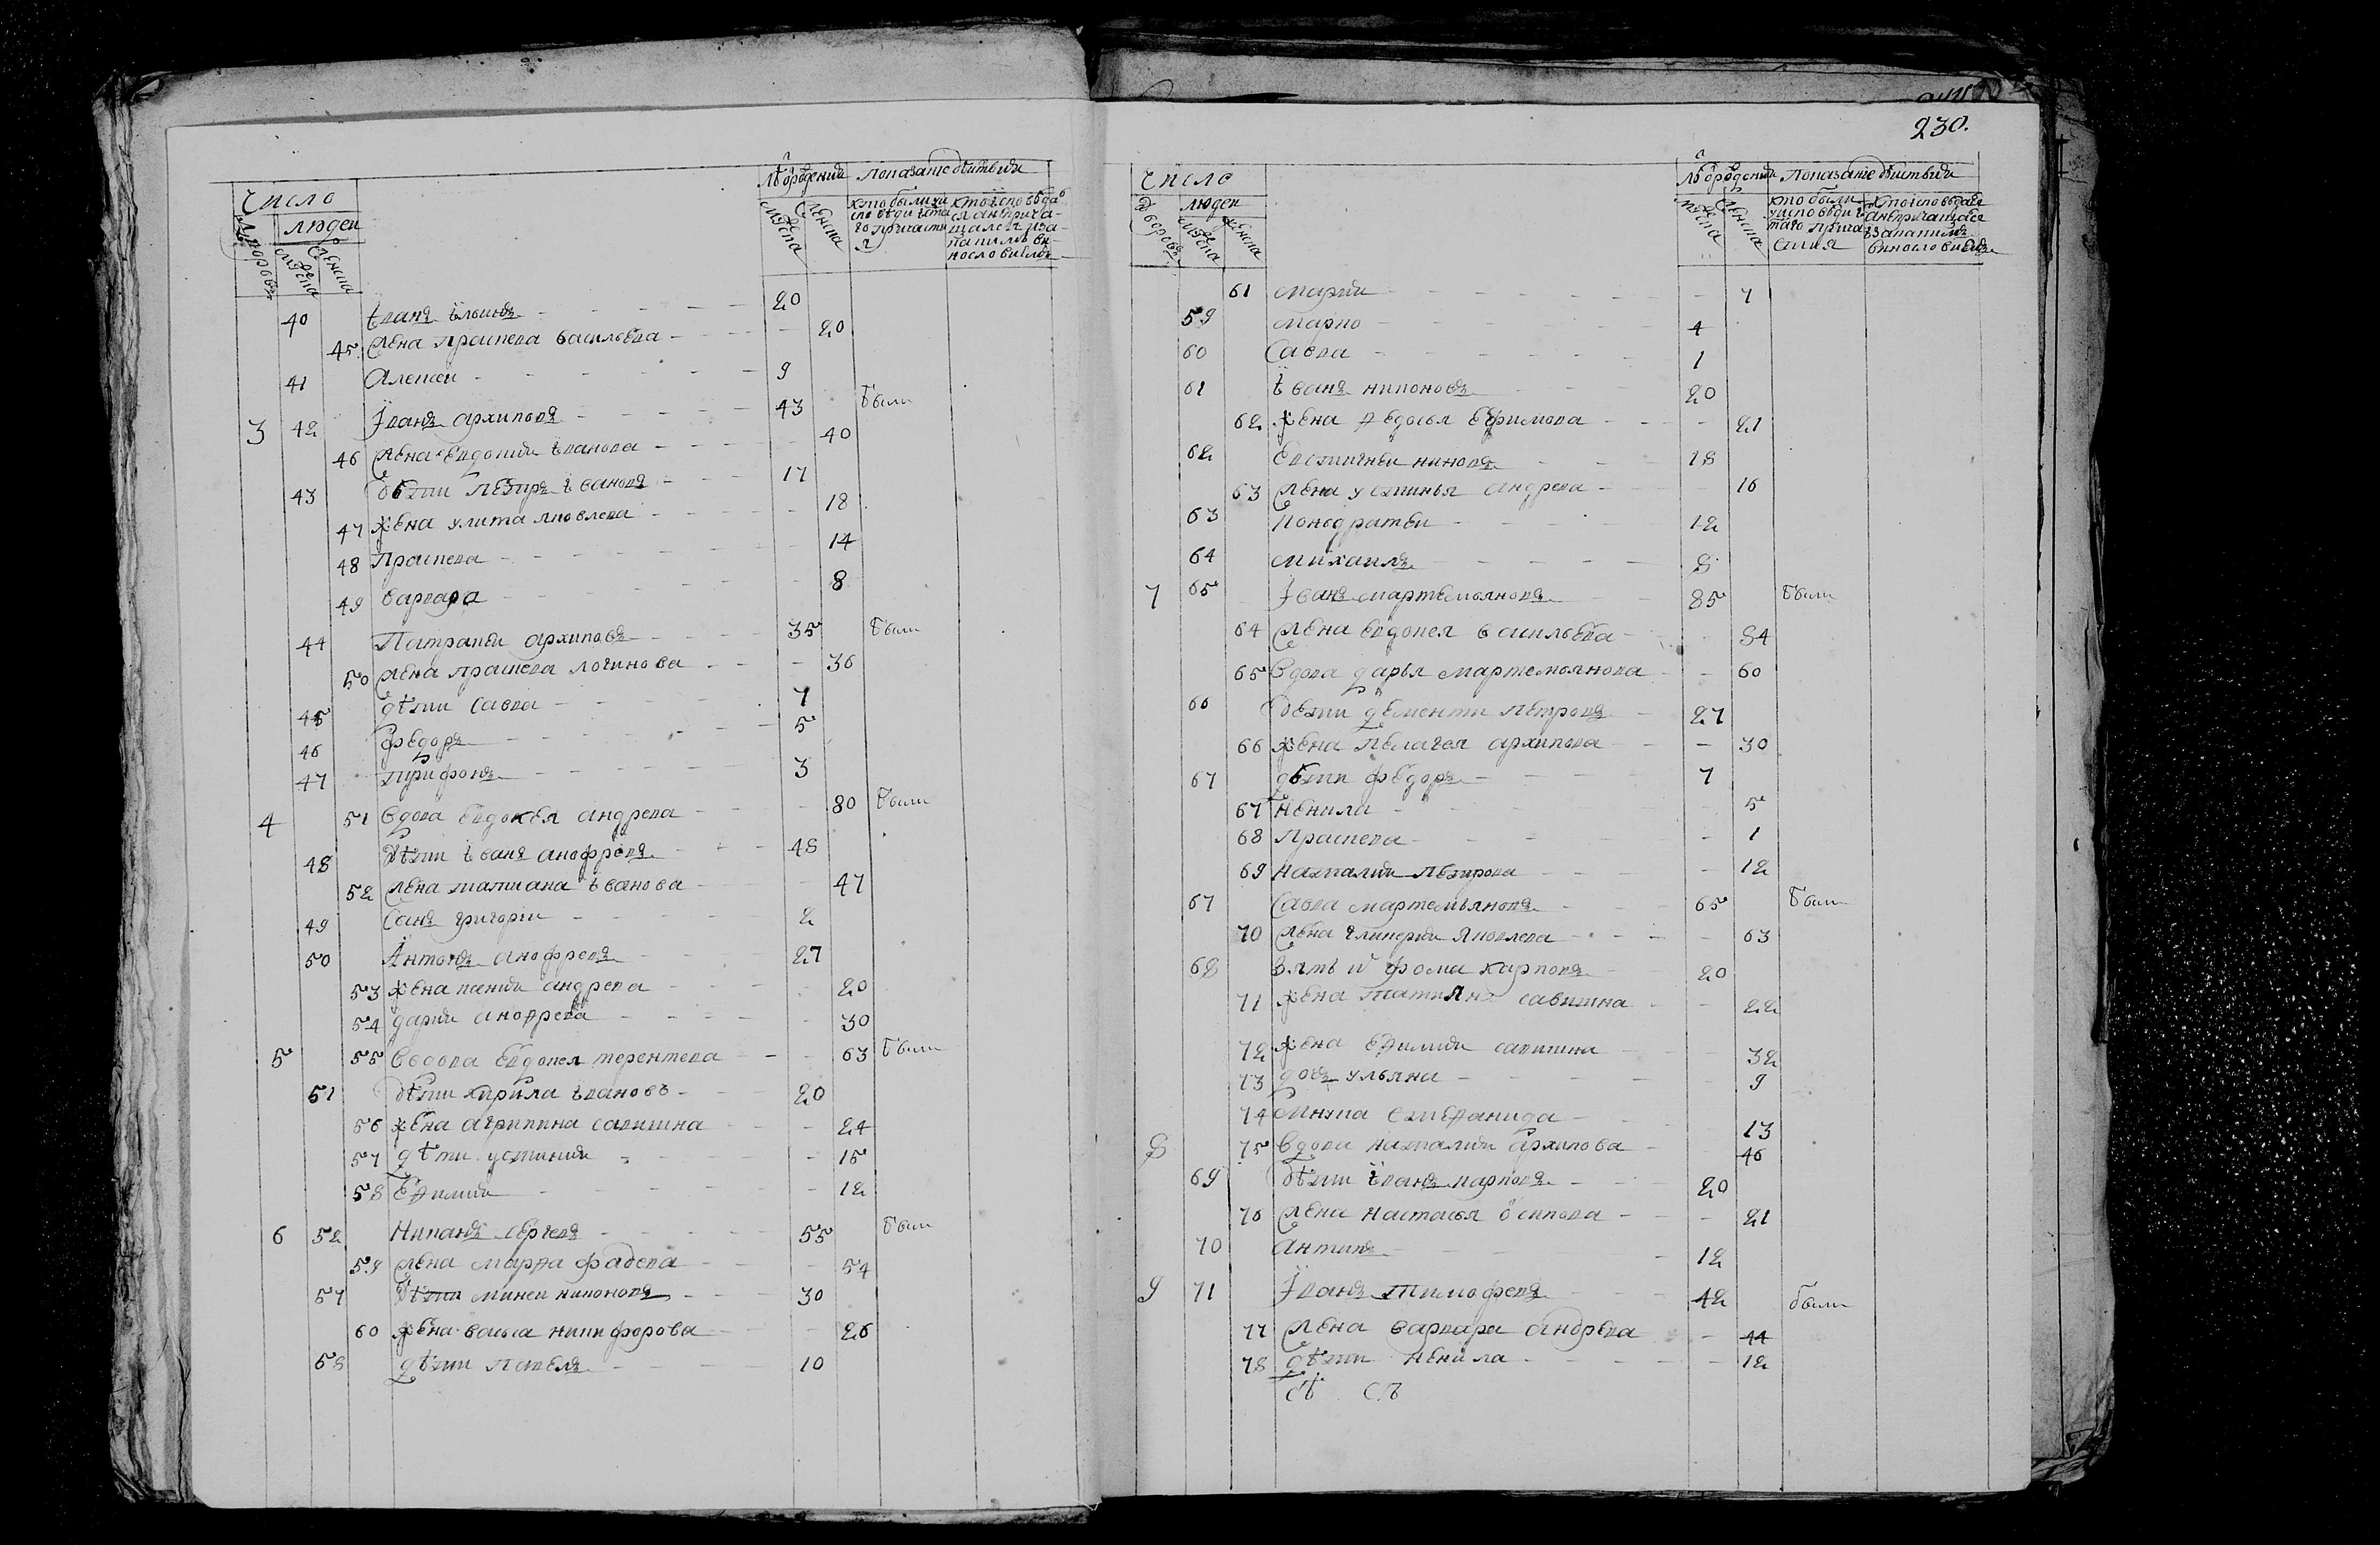 число
людей
дворовъ
мужеска
женска
лѣ ѿ рожденія
мужеска
женска
показаніе дѣйствія
кто были на исповѣди и свята
го причастия
40 Іванъ Ильинъ - 20
45 Жена праскева васильева - 20
41 Алексѣи - 9
3 42 Іванъ архиповъ - 43 были
46 Жена Евдокия Іванова - 40
43 дѣти пѣтръ Івановъ - 17
47 жена улита яковлева - 18
48 праскева - 14
49 варвара - 8
44 Патракѣи архиповъ - 35 были
50 жена праскева логинова - 36
45 дѣти Савва - 7
46 Федоръ - 5
47 трифонъ - 3
4 51 вдова евдокея андреева - 80 были
48 дѣти Іванъ анофреевъ - 48
52 жена татиана Іванова - 47
49 Сынъ григорiи - 2
50 Антонъ анофреевъ - 27
53 жена ксения андреева - 20
54 дария андреева - 30
5 55 вдова Евдокея терентева - 63 были
51 дѣти кирила Івановъ - 20
56 жена агрипина савишна - 24
57 дѣти устиния - 15
58 Ефимия - 12
6 52 Никонъ сергеевъ - 55 были
59 жена марфа фадеева - 54
57 дѣти минеи никоновъ - 30
60 жена васса никифорова - 26
58 дѣти павелъ - 10
230.
число
людей
дворовъ
мужеска
женска
лѣ ѿ рожденія
мужеска
женска
показаніе дѣйствія
61 мария - 7
59 марко - 4
60 Савва - 1
61 Іванъ никоновъ - 20
62 жена федосья ефимова - 21
62 Евстигнеи никоновъ - 18
63 жена устинья андреева - 16
63 Кондратеи - 12
64 михаилъ - 8
7 65 Іванъ мартемьяновъ - 85 были
64 жена евдокея васильева - 84
65 вдова дарья мартемьянова - 60
66 дети дементи петровъ - 27
66 жена пелагея архипова - 30
67 дѣти федоръ - 7
67 ненила - 5
68 праскева - 1
69 наталия петрова - 12
67 Савва мартемьяновъ - 65 были
70 жена гликерия яковлева - 63
68 Зять ѿ фома карповъ - 20
71 жена татияна савишна - 22
72 жена Ефимия савишна - 32
73 дочь ульяна - 9
74 внука степанида - 13
8 75 вдова наталия архипова - 46
69 дѣти Іванъ карповъ - 20
76 жена настасья осипова - 21
70 антипъ - 12
9 71 Іванъ Тимофеевъ - 42 были
77 жена варвара андреева - 44
78 дѣти ненила - 12